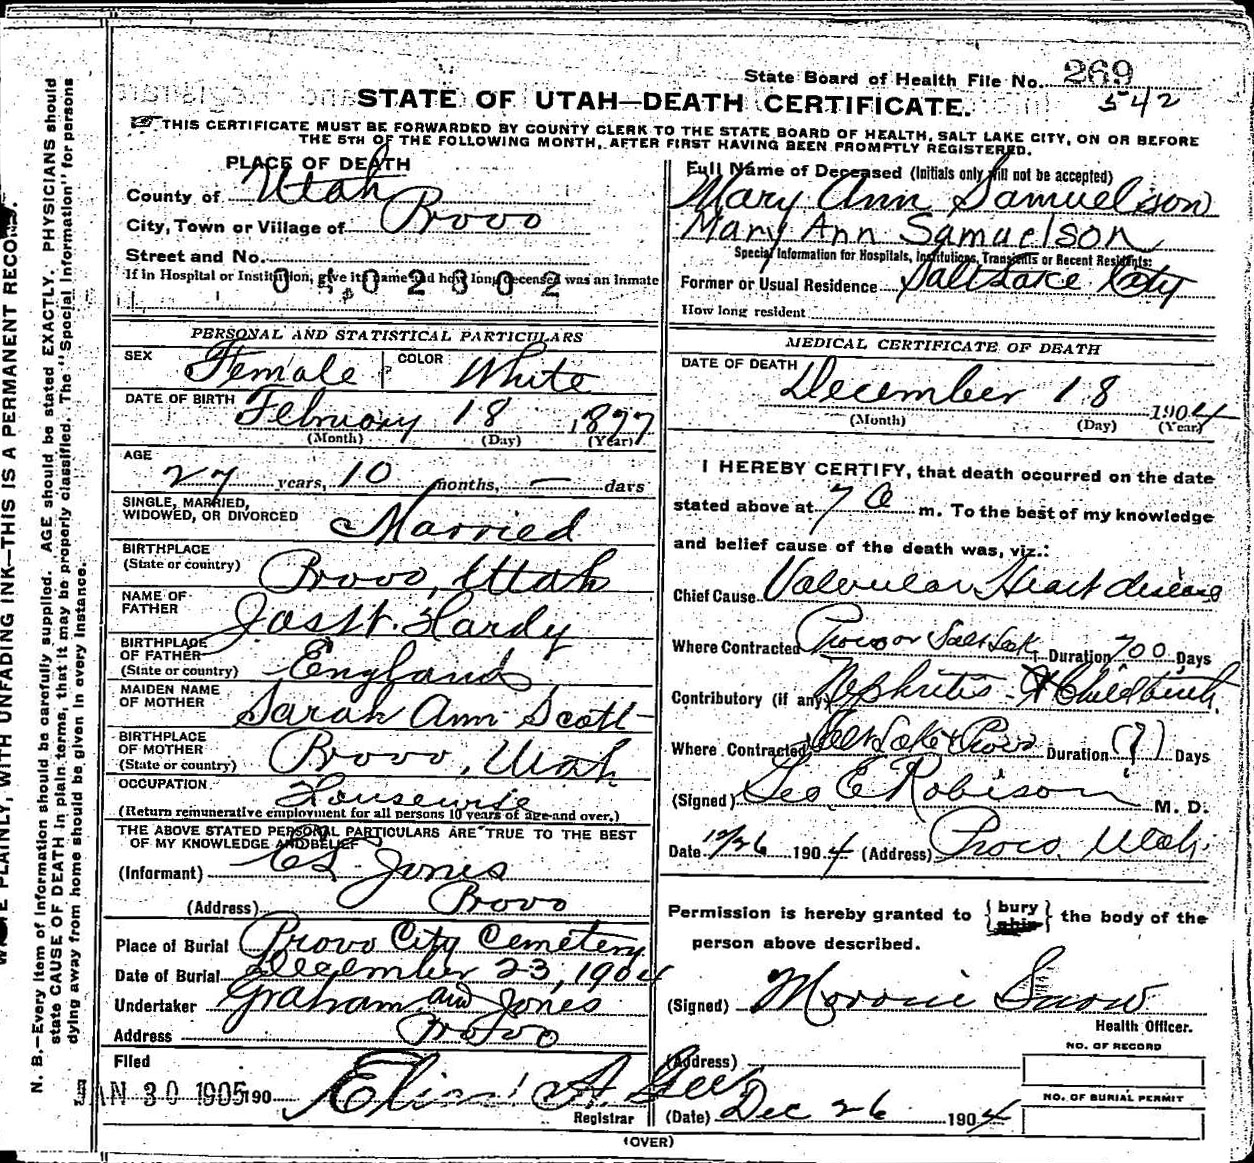 State Board of Health File No. 269
542
STATE OF UTAH—DEATH CERTIFICATE.
THIS CERTIFICATE MUST BE FORWARDED BY COUNTY CLERK TO THE STATE BOARD OF HEALTH, SALT LAKE CITY, ON OR BEFORE
THE 5TH OF THE FOLLOWING MONTH, AFTER FIRST HAVING BEEN PROMPTLY REGISTERED.
PLACE OF DEATH
County of Utah
City, Town or Village of Provo
Street and No.
If in Hospital or Institution, give its name and how long deceased was an inmate
0 5 0 2 3 0 2
PERSONAL AND STATISTICAL PARTICULARS
SEX Female COLOR White
DATE OF BIRTH February 18 1877
(Month) (Day) (Year)
AGE
27 years, 10 months, — days
SINGLE, MARRIED,
WIDOWED, OR DIVORCED Married
BIRTHPLACE
(State or country) Provo, Utah
NAME OF
FATHER Jas W. Hardy
BIRTHPLACE
OF FATHER
(State or country) England
MAIDEN NAME
OF MOTHER Sarah Ann Scott
BIRTHPLACE
OF MOTHER
(State or country) Provo, Utah
OCCUPATION Housewife
(Return remunerative employment for all persons 10 years of age and over.)
THE ABOVE STATED PERSONAL PARTICULARS ARE TRUE TO THE BEST
OF MY KNOWLEDGE AND BELIEF
(Informant) Jones
(Address) Provo
Place of Burial Provo City Cemetery
Date of Burial December 23, 1904
Undertaker Graham and Jones
Address Provo
Filed
JAN 30 1905 190
A. Gee
Registrar
Full Name of Deceased (Initials only will not be accepted)
Mary Ann Samuelson
Mary Ann Samuelson
Special Information for Hospitals, Institutions, Transients or Recent Residents:
Former or Usual Residence Salt Lake City
How long resident
MEDICAL CERTIFICATE OF DEATH
DATE OF DEATH
December 18 1904
(Month) (Day) (Year)
I HEREBY CERTIFY, that death occurred on the date
stated above at 7 a m. To the best of my knowledge
and belief cause of the death was, viz.:
Chief Cause Valvular Heart disease
Where Contracted Provo or Salt Lake Duration 700 Days
Contributory (if any) Nephritis & Childbirth.
Where Contracted Salt Lake & Provo Duration (?) Days
(Signed) Geo E Robison M. D.
Date 12/26 1904 (Address) Provo, Utah.
Permission is hereby granted to {bury ship} the body of the
person above described.
(Signed) Moroni Snow
Health Officer.
(Address)
NO. OF RECORD
NO. OF BURIAL PERMIT
(Date) Dec 26 1904
(OVER)
WRITE PLAINLY, WITH UNFADING INK—THIS IS A PERMANENT RECORD.
N. B.—Every item of information should be carefully supplied. AGE should be stated EXACTLY. PHYSICIANS should
state CAUSE OF DEATH in plain terms, that it may be properly classified. The "Special Information" for persons
dying away from home should be given in every instance.